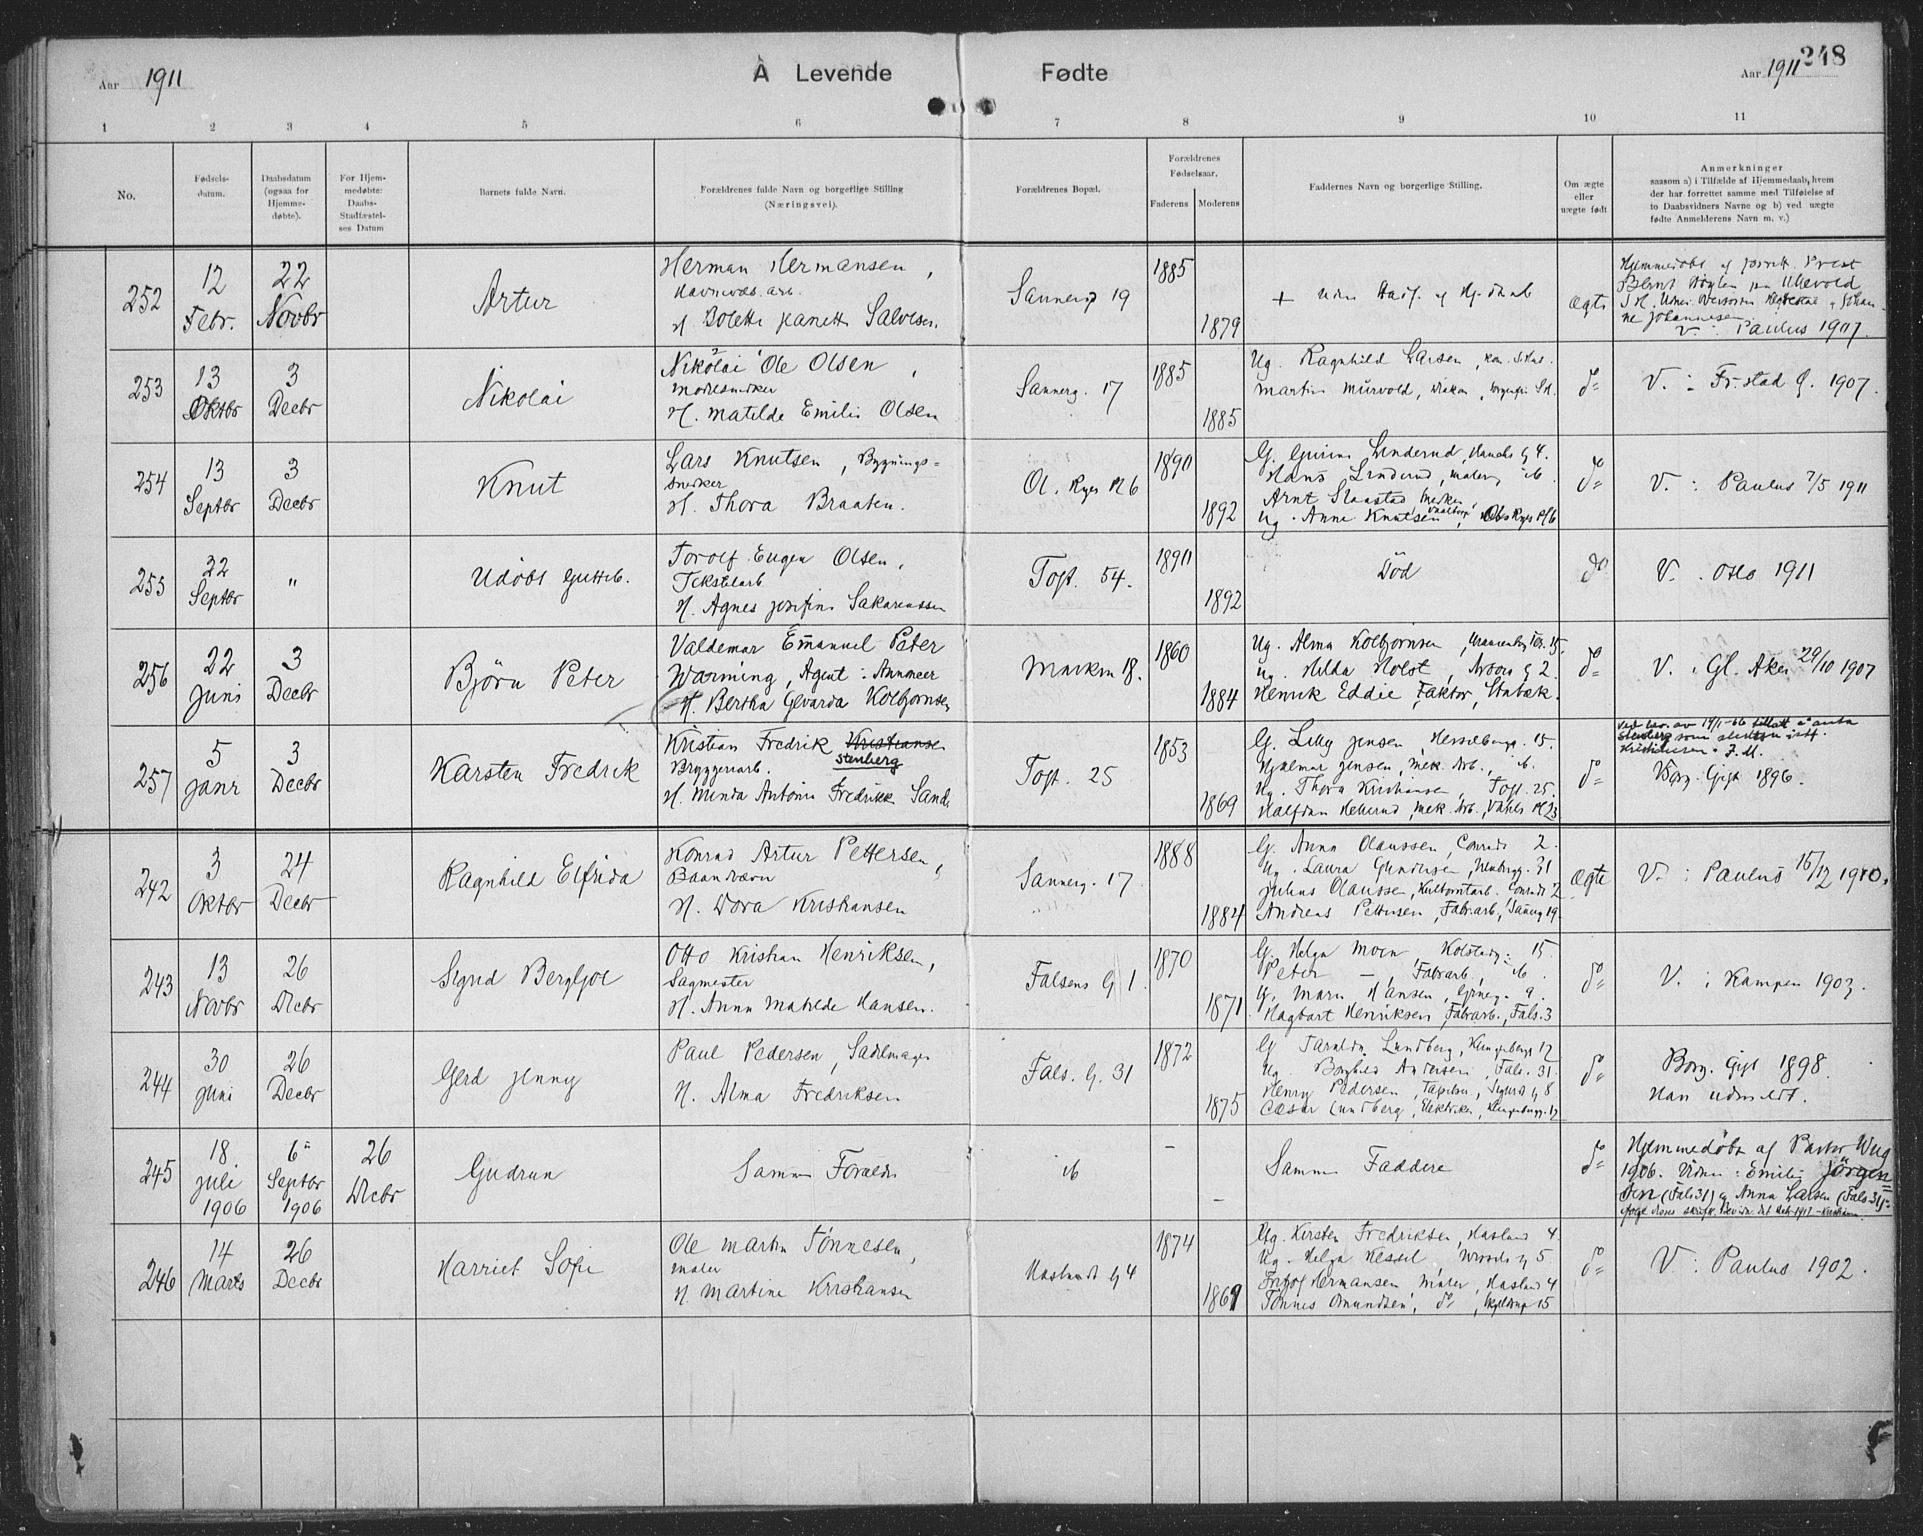 Aar 1911
À Levende Fødte
Aar 1911
248
1 2 3 4 5 6 7 8 9 10 11
No.
Fødsels-
datum.
Daabsdatum
(ogsaa for
Hjemme-
døbte).
For Hjem-
medøbte:
Daabs-
Stadfæstel-
ses Datum
Barnets fulde Navn.
Forældrenes fulde Navn og borgerlige Stilling
(Næringsvei).
Forældrenes Bopæl.
Forældrenes
Fødselsaar.
Faderens Moderens
Faddernes Navn og borgerlige Stilling.
Om ægte
eller
uægte født
Anmerkninger
saasom a) i Tilfælde af Hjemmedaab, hvem
der har forrettet samme med Tilføielse af
to Daabsvidners Navne og b) ved uægte
fødte Anmelderens Navn m. v.)
252
12
Febr.
22
Novbr
Artur
Herman Hermansen,
Havnevæs. arb.
H Bolette Janette Salvesen
Sannerg 19
1885
1879
ægte
V. : Paulus 1907.
253
13
Oktbr
3
Decbr
Nikolai
Nikolai Ole Olsen,
Modelsnedker
H. Matilde Emilie Olsen
Sannerg. 17
1885
1885
Ug. Ragnhild Larsen,
Martin Murvold, Diakon,
do
V. : Fr.stad G. 1907.
254
13
Septbr
3
Decbr
Knut
Lars Knutsen, Bygnings-
snedker
H. Thora Braaten.
Ol. Ryes Pl 6
1890
1892
Hans Linderud, Maler, ib.
Ug. Anne Knutsen, Ol. Ryes Pl 6
do
V. : Paulus 7/5 1911
255
22
Septbr
"
Udøbt Gutteb.
Torolf Eugen Olsen,
Tekstilarb
H. Agnes Josefine Sakariassen
Toft. 54.
18911
1892
Död
do
V. . Oslo 1911
256
22
Juni
3
Decbr
Björn Peter
Valdemar Emanuel Peter
Warming, Agent : Annoncer
H. Bertha Gevarda Kolbjornsen
Markvn 18.
1860
1884
Ug. Alma Kolbjornsen,
Ug. Hilda Holst,
Henrik Eddie, Faktor, Stabæk.
do
V. : Gl. Aker 29/10 1907
257
5
Janr
3
Decbr
Karsten Fredrik
Kristian Fredrik Kristiansen
Stenberg
Bryggeriarb.
H. Minda Antonie Fredrikke Sand
Toft. 25
1853
1869
G. Lilly Jensen, Hesselbergg. 15.
Hjalmar Jensen, Mek. Arb., ib.
Ug. Thora Kristiansen, Toft. 25.
Halfdan Hellerud, Mek. Arb., Vahls Pl 23
do
Ved bev. av 14/1-66 tillatt å anta
Stenberg som slektsn. istf.
Kristiansen. J.M.
Borg. Gift 1896.
242
3
Oktbr
24
Decbr
Ragnhild Elfrida
Konrad Artur Pettersen,
H. Dora Kristiansen
Sannerg. 17
1888
1884
G. Anna Olaussen, Conrads 2.
Ug. Laura Gundersen, 31
Julius Olaussen, Conrads 2
Andreas Pettersen, Fabr.arb., Sannerg 19
ægte
V. : Paulus 15/12 1910.
243
13
Novbr
26
Decbr
Signd Bergljot
Otto Kristian Henriksen,
Sagmester
H. Anna Matilde Hansen.
Falsens G 1.
1870
1871
G. Helga Moen Kolstadg. 15.
Peter — , Fabrarb., ib.
G. Maren Hansen, 9.
Hagbart Henriksen, Fabrarb., Fals. 3
do
V. : Kampen 1903.
244
30
Juni
26
Decbr
Gerd Jenny
Paul Pedersen, Sadelmager
H. Alma Fredriksen
Fals. G. 31
1872
1875
Ug. Borghild Andersen, Fals. 31.
Henry Pedersen, Tapetser, Sigurds g 8
Cæsar Lundberg, Elektriker, Klingenbergg. 12
do
Borg. Gift 1898.
Han udmeldt.
245
18
Juli
1906
6
Septbr
1906
26
Decbr
Gudrun
Samme Foræld.
ib
—
—
Samme Faddere
do
Hjemmedøbt af Pastor Wug
1906. Vidner : Emilie Jörgen=
sen (Fals 31) og Anna Larsen (Fals 31)
246
14
Marts
26
Decbr
Harriet Sofie
Ole Martin Tönnesen,
Maler
H Martine Kristiansen
Haslunds g 4
1874
1869
Ug. Kirsten Fredriksen, Haslund 4.
Ug. Helga Kessel, 5
Fritjof Hermansen, Maler, Haslund 4
Tönnes Omundsen, do, 15
do
V. : Paulus 1902.